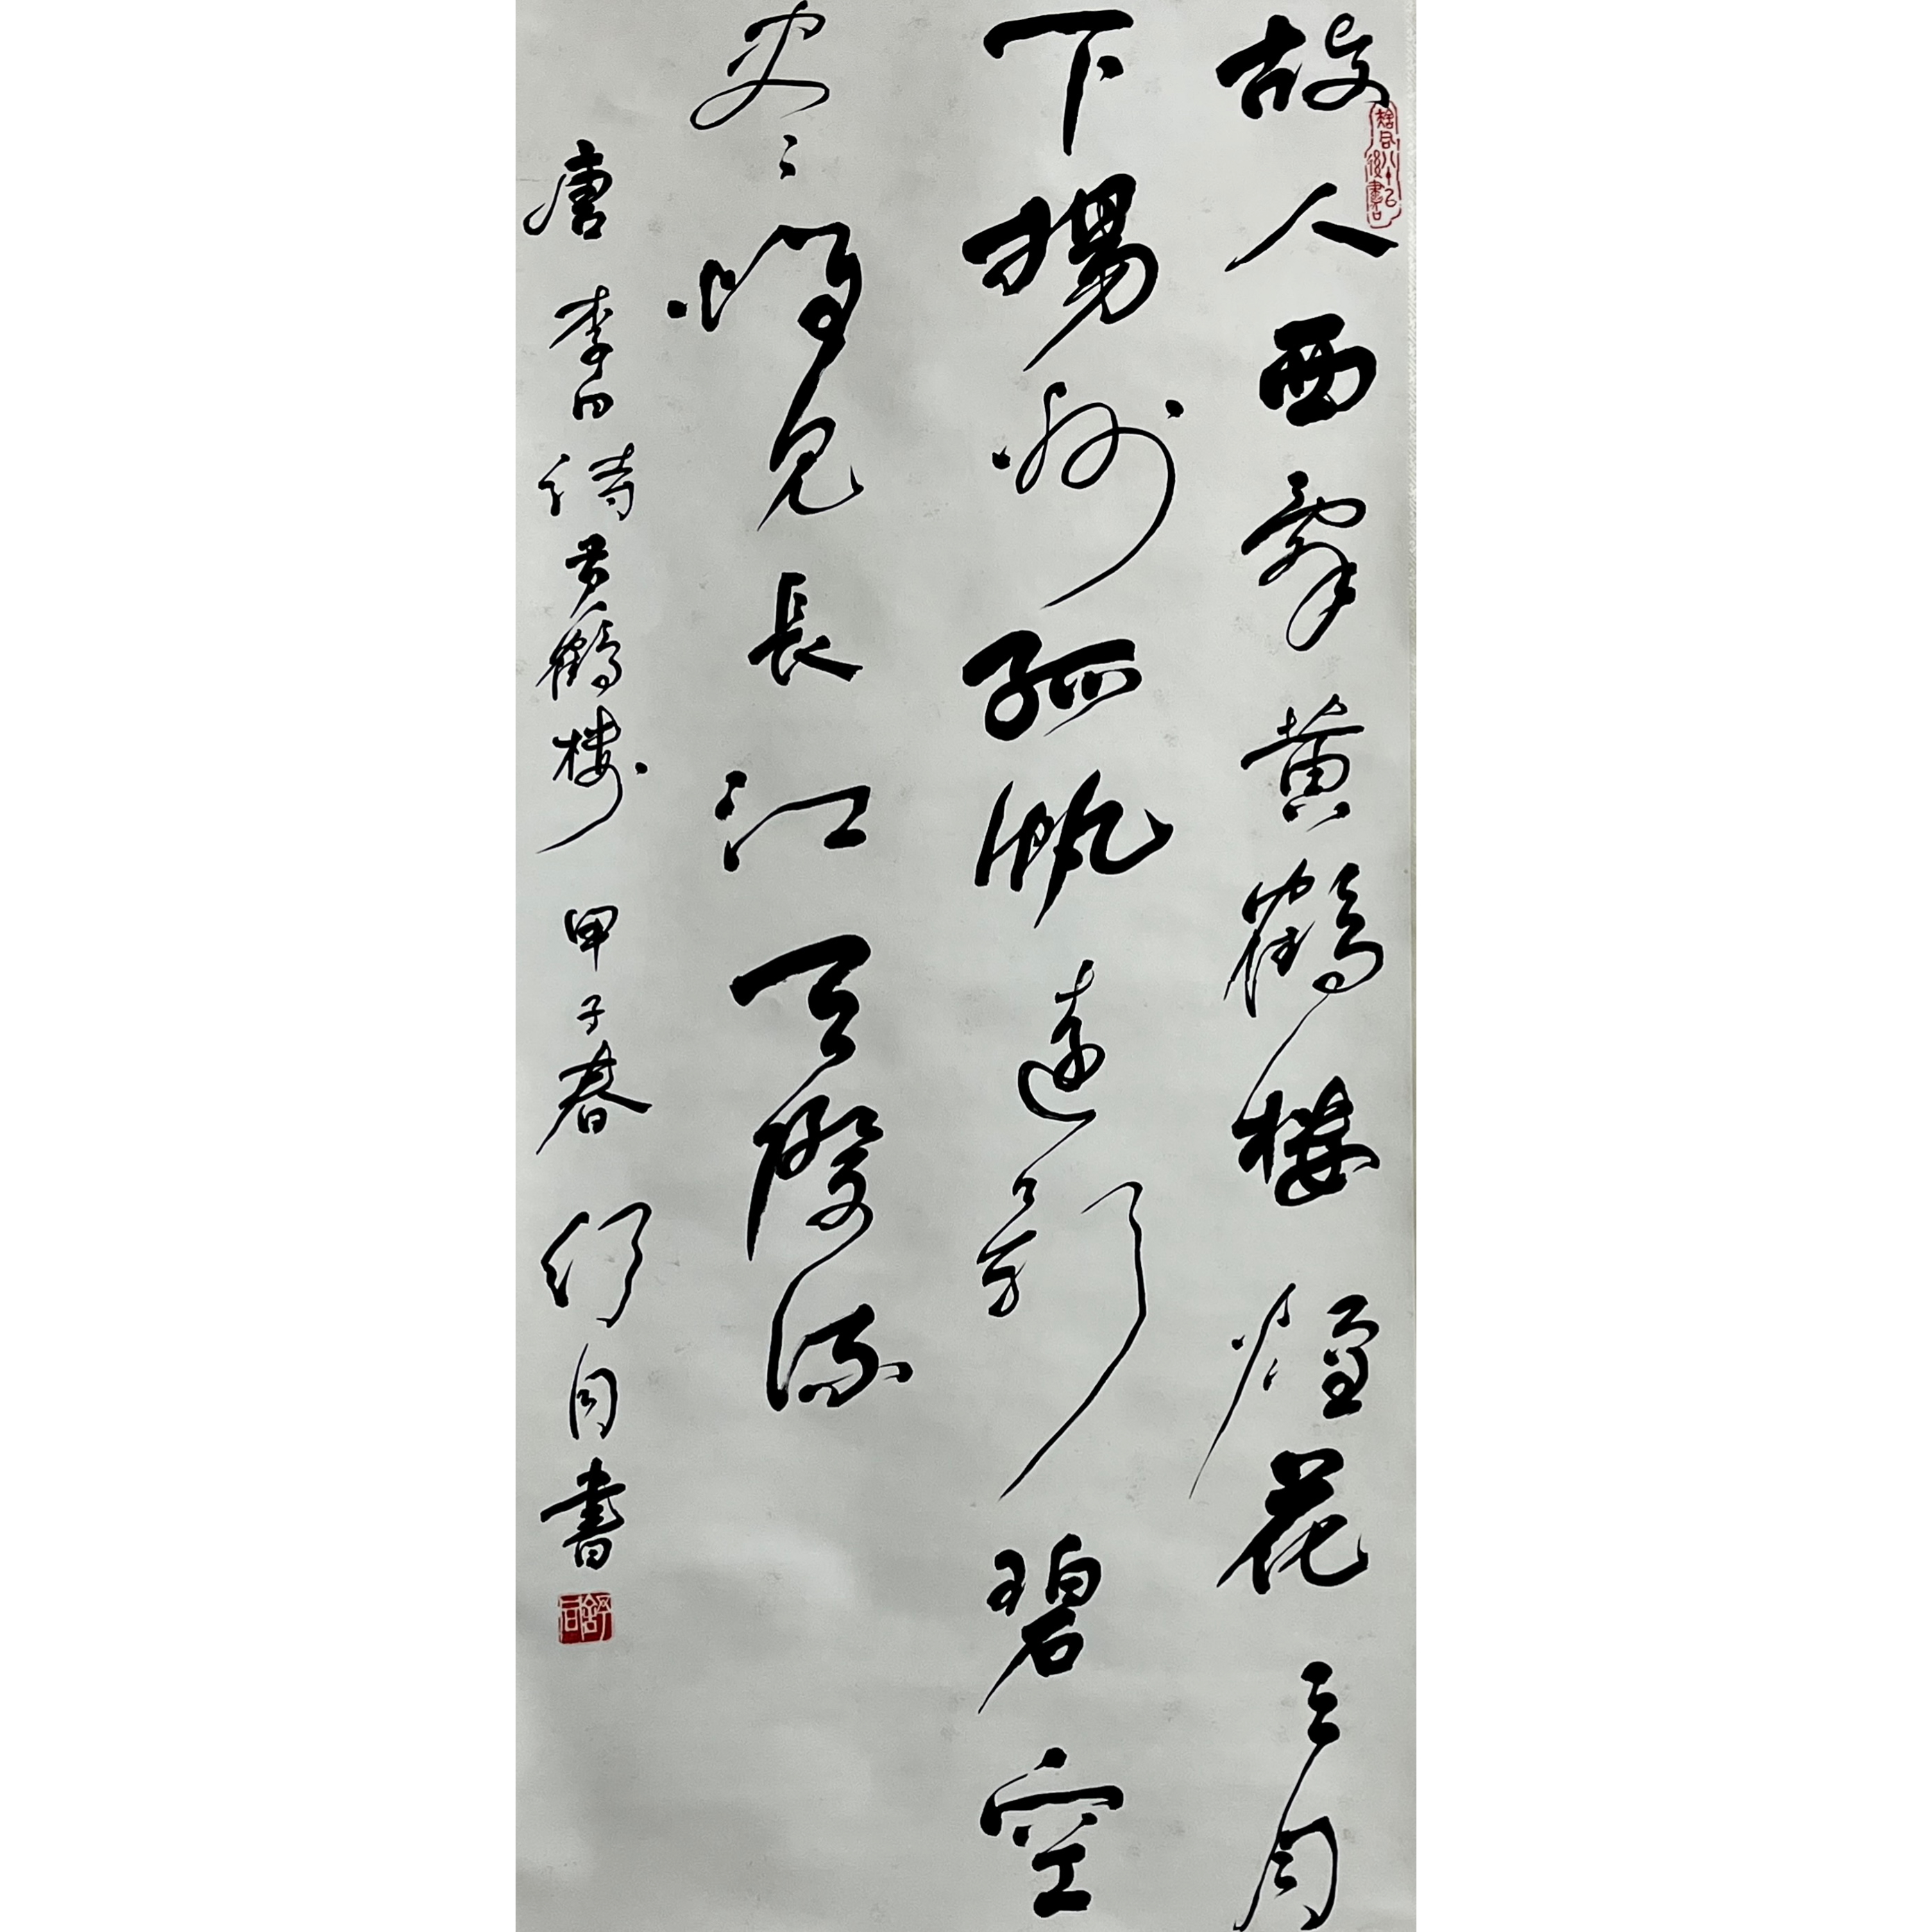 故人西辭黄鶴樓煙花三月
下揚州孤帆遠影碧空
尽唯見長江天際流
唐李白詩黄鶴樓 甲子春 舒同書
舒同